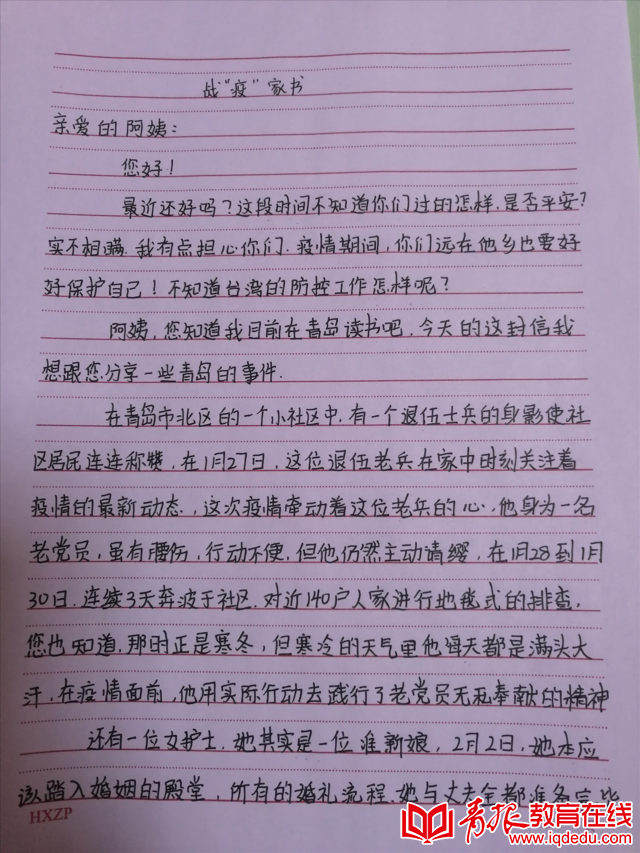 战“疫”家书
亲爱的阿姨：
您好！
最近还好吗？这段时间不知道你们过的怎样，是否平安？
实不相瞒，我有点担心你们．疫情期间，你们远在他乡也要好
好保护自己！不知道台湾的防控工作怎样呢？
阿姨，您知道我目前在青岛读书吧，今天的这封信我
想跟您分享一些青岛的事件．
在青岛市北区的一个小社区中，有一个退伍士兵的身影使社
区居民连连称赞，在1月27日，这位退伍老兵在家中时刻关注着
疫情的最新动态，这次疫情牵动着这位老兵的心，他身为一名
老党员，虽有腰伤，行动不便，但他仍然主动请缨，在1月28到1月
30日，连续3天奔波于社区，对近140户人家进行地毯式的排查，
您也知道，那时正是寒冬，但寒冷的天气里他每天都是满头大
汗，在疫情面前，他用实际行动去践行了老党员无私奉献的精神
还有一位女护士，她其实是一位准新娘，2月2日，她本应
该踏入婚姻的殿堂，所有的婚礼流程，她与丈夫全都准备完毕
HXZP
青报教育在线
www.iqdedu.com